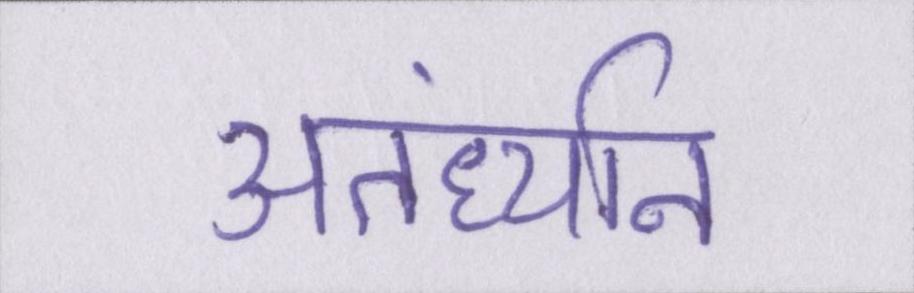 अतंर्ध्यान